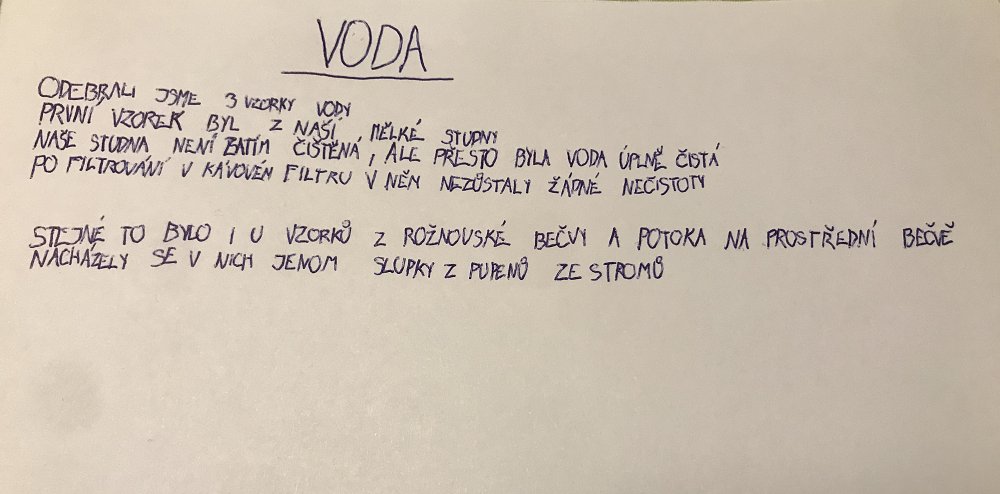 VODA
ODEBRALI JSME 3 VZORKY VODY
PRVNÍ VZOREK BYL Z NAŠÍ MĚLKÉ STUDNY
NAŠE STUDNA NENÍ ZATÍM ČIŠTĚNÁ, ALE PŘESTO BYLA VODA ÚPLNĚ ČISTÁ
PO FILTROVÁNÍ V KÁVOVÉM FILTRU V NĚM NEZŮSTALY ŽÁDNÉ NEČISTOTY
STEJNÉ TO BYLO I U VZORKŮ Z ROŽNOVSKÉ BEČVY A POTOKA NA PROSTŘEDNÍ BEČVĚ
NACHÁZELY SE V NICH JENOM SLUPKY Z PUPENŮ ZE STROMŮ